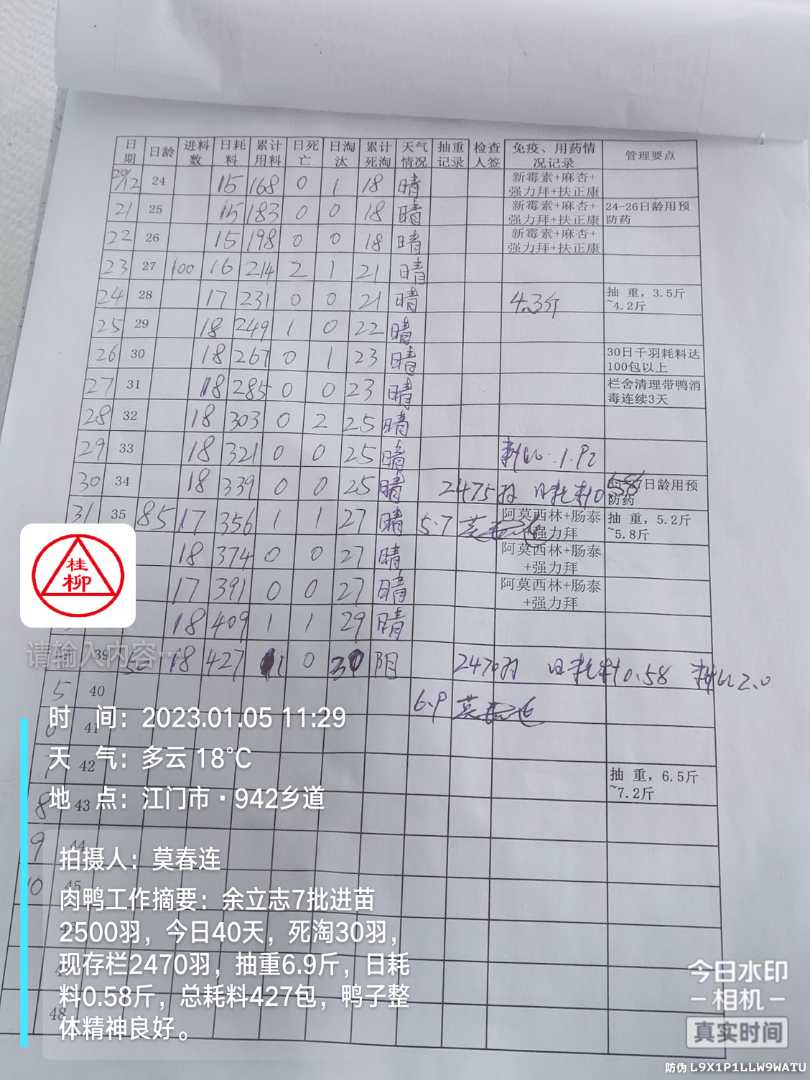 日期 日龄 进料数 日耗料 累计用料 日死亡 日淘汰 累计死淘 天气情况 抽重记录 检查人签 免疫、用药情况记录 管理要点
20/12 24 15 168 0 1 18 晴 新霉素+麻杏+强力拜+扶正康
21 25 15 183 0 0 18 晴 新霉素+麻杏+强力拜+扶正康 24-26日龄用预防药
22 26 15 198 0 0 18 晴 新霉素+麻杏+强力拜+扶正康
23 27 100 16 214 2 1 21 晴
24 28 17 231 0 0 21 晴 4.3斤 抽 重，3.5斤~4.2斤
25 29 18 249 1 0 22 晴
26 30 18 267 0 1 23 晴 30日千羽耗料达100包以上
27 31 18 285 0 0 23 晴 栏舍清理带鸭消毒连续3天
28 32 18 303 0 2 25 晴
29 33 18 321 0 0 25 晴 料比:1.92
30 34 18 339 0 0 25 晴 2475羽 日耗料0 日龄用预防药
31 35 85 17 356 1 27 晴 5.7 莫春连 阿莫西林+肠泰+强力拜 抽 重，5.2斤~5.8斤
18 374 0 0 27 晴 阿莫西林+肠泰+强力拜
17 391 0 0 27 晴 阿莫西林+肠泰+强力拜
18 409 1 1 29 晴
39 18 427 1 0 30 阴 2470羽 日耗料0.58 料比2.0
5 40 6.9 莫春连
41
42 抽 重，6.5斤~7.2斤
8 43
9 44
10 45
48
桂柳
请输入内容…
时 间：2023.01.05 11:29
天 气：多云 18℃
地 点：江门市·942乡道
拍摄人：莫春连
肉鸭工作摘要：余立志7批进苗
2500羽，今日40天，死淘30羽，
现存栏2470羽，抽重6.9斤，日耗
料0.58斤，总耗料427包，鸭子整
体精神良好。
今日水印
相机
真实时间
防伪 L9X1P1LLW9WATU